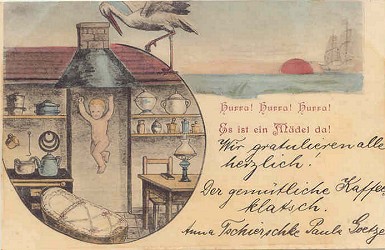 Hurra! Hurra! Hurra!
Es ist ein Mädel da!
Wir gratulieren alle
herzlich!
Der gemütliche Kaffee
klatsch.
Anna Tschierschke Paula Goetze